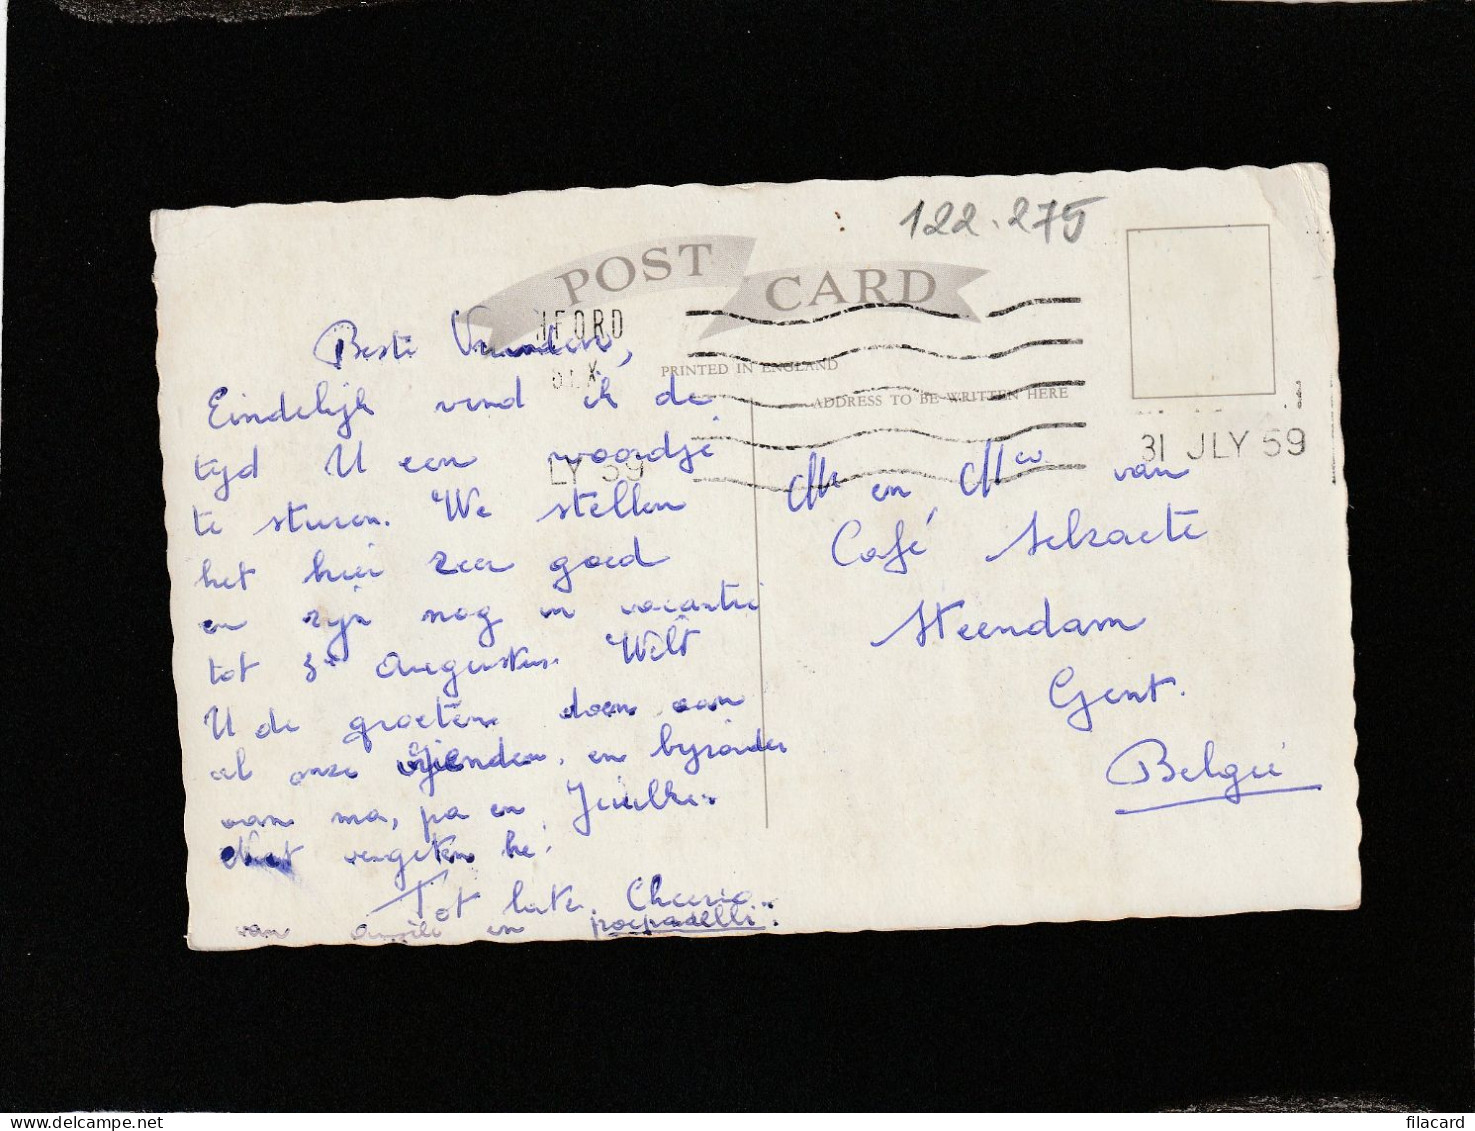 122.275
POST CARD
NFORD
PRINTED IN ENGLAND
ADDRESS TO BE WRITTEN HERE
31 JLY 59
LY 59
Beste Vrienden,
Eindelijk vind ik de
tijd U een woordje
te sturen. We stellen
het hier zeer goed
en zijn nog in vacantie
tot 3e Augustus. Wilt
U de groeten doen aan
al onze vrienden, en bijzonder
aan ma, pa en
Niet vergeten he!
Tot later. Cheerio.
van en
Mr en Mew van
Café Selzaete
Steendam
Gent.
België
filacard.com